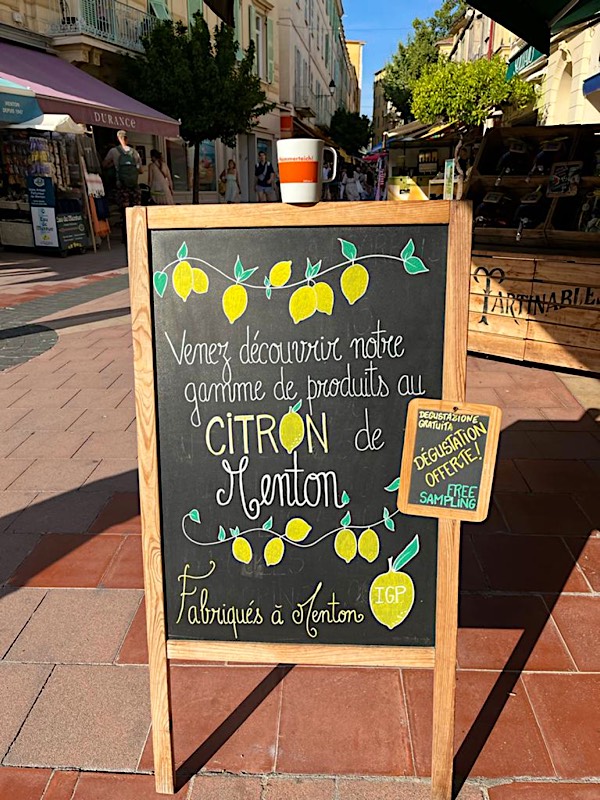 DURANCE
Venez découvrir notre
gamme de produits au
CITRON de
Menton
Fabriqués à Menton
IGP
DEGUSTAZIONE
GRATUITA
DÉGUSTATION
OFFERTE!
FREE
SAMPLING
TARTINABLES